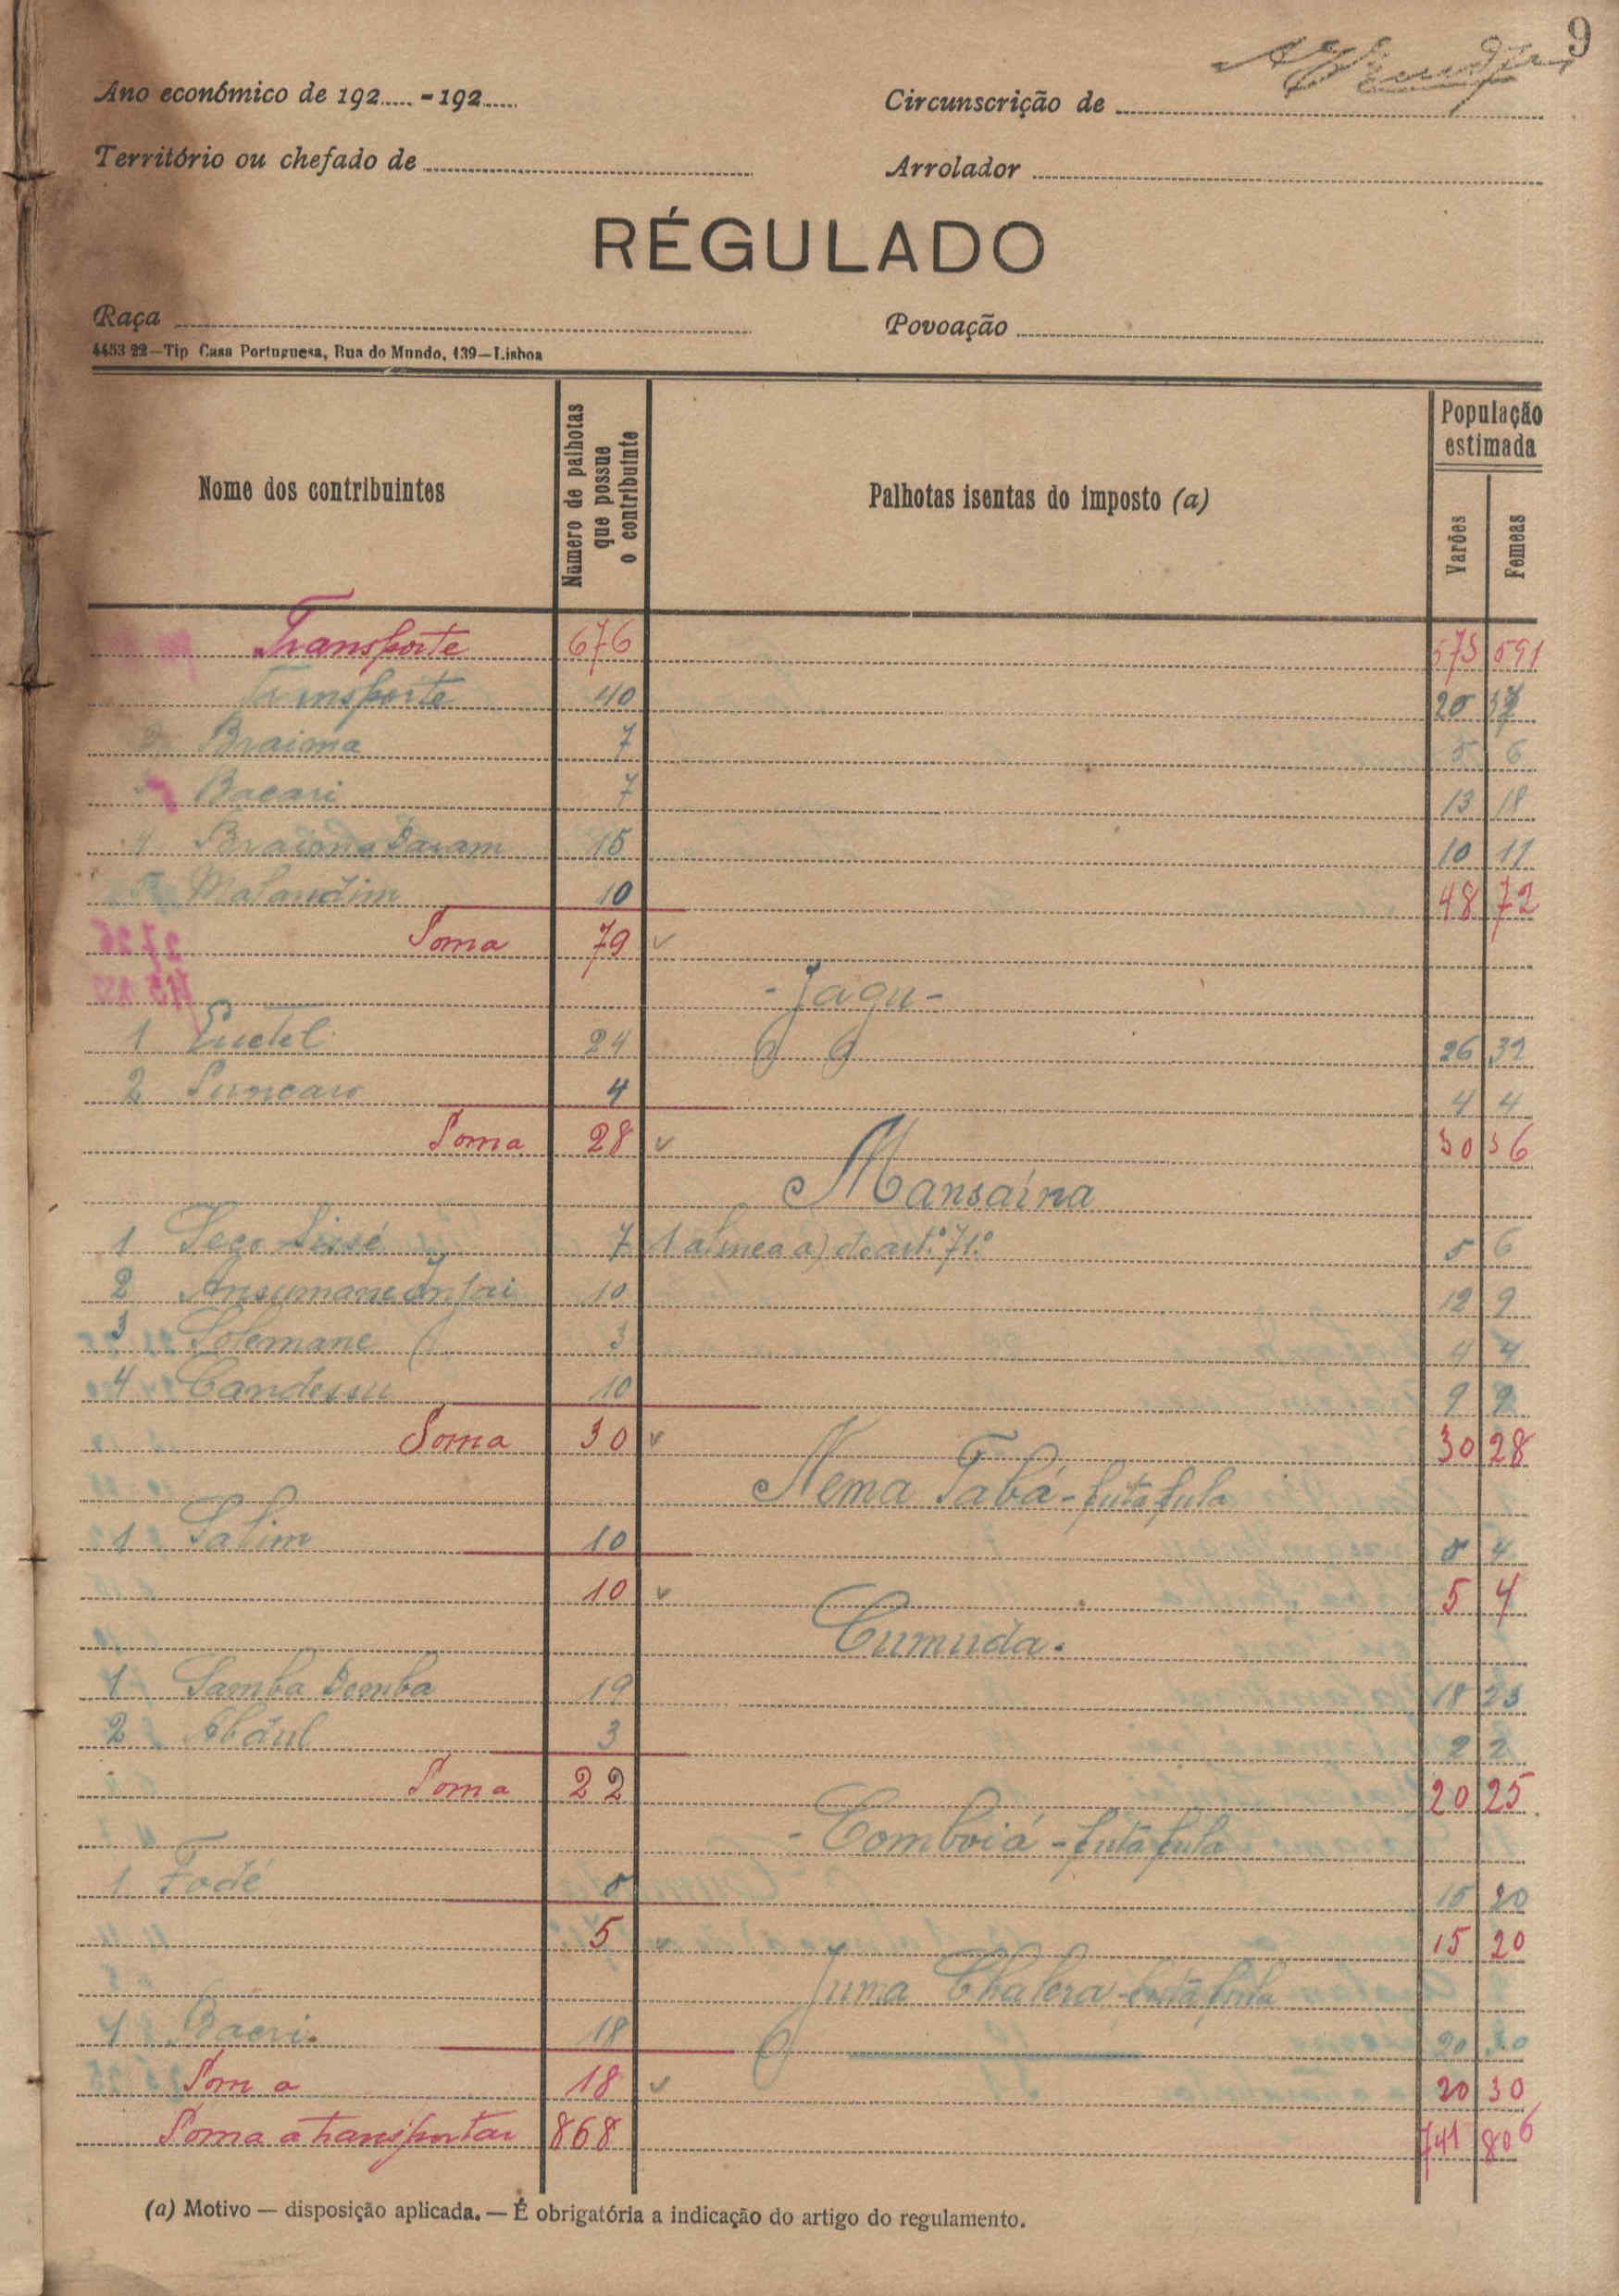 9
Ano económico de 192..... - 192......
Circunscrição de
Território ou chefado de
Arrolador
RÉGULADO
Raça
Povoação
4453 22—Tip Casa Portuguesa, Rua do Mundo, 139—Lisboa
Nome dos contribuintes
Número de palhotas que possue o contribuinte
Palhotas isentas do imposto (a)
População estimada
Varões
Femeas
Transporte 676 573 591
Transporte 40 20
Braima 7 5 6
Bacari 7 13 18
4 Braima Daram 15 10 11
5 Malandim 10 48 72
Soma 79
- Jagu -
1 24 26 32
2 Suncaro 4 4 4
Soma 28 30 36
Mansaína
1 Seco Sissé 7 1 alinea a) do art.º 71.º 5 6
2 Ansumane Injai 10 12 9
3 Solemane 3 4 4
4 Candessu 10 9 9
Soma 30 30 28
Nema Tabá - futa fula
1 Salim 10 5 4
10 5 4
Cumuda.
1 Samba Demba 19 18 23
2 Abdul 3 2 2
Soma 22 20 25
- Comboiá - futa fula
1 Fodé 5 15 20
5 15 20
Juma futa fula
1 18 20 30
Soma 18 20 30
Soma a transportar 868 741 806
(a) Motivo — disposição aplicada. — É obrigatória a indicação do artigo do regulamento.